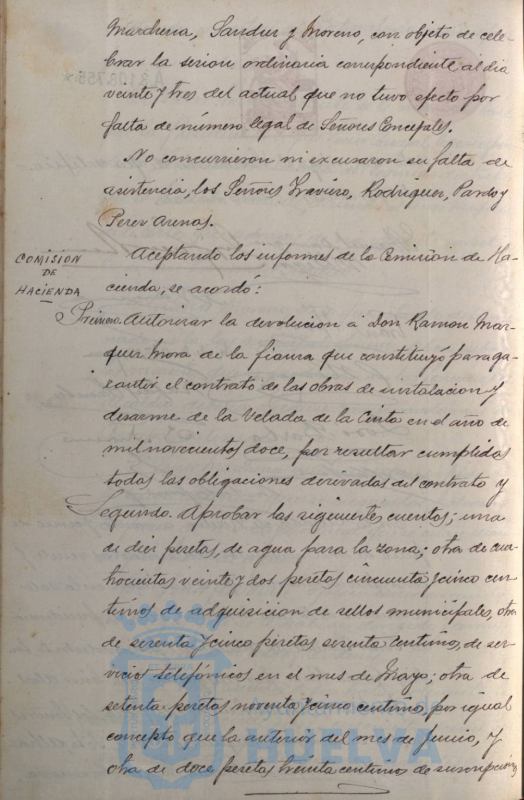 Marchena, Sandus y Moreno, con objeto de cele-
brar la sesion ordinaria correspondiente al dia
veinte y tres del actual que no tuvo efecto por
falta de número legal de Señores Concejales.
No concurrieron ni excusaron su falta de
asistencia, los Señores Traviero, Rodriguez, Pardo y
Perez Arenas.
COMISION
DE
HACIENDA
Aceptando los informes de la Comisión de Ha-
cienda, se acordó:
Primero. Autorizar la devolucion á Don Ramon Mar-
quez Mora de la fianza que constituyó para ga-
rantir el contrato de las obras de instalacion y
desarme de la Velada de la Cinta en el año de
mil novecientos doce, por resultar cumplidas
todas las obligaciones derivadas del contrato y
Segundo. Aprobar las siguientes cuentas; una
de diez pesetas, de agua para la zona; otra de cua-
trocientas veinte y dos pesetas cincuenta y cinco cen-
timos de adquisicion de sellos municipales, otra
de sesenta y cinco pesetas sesenta centimos, de ser-
vicios telefónicos en el mes de Mayo; otra de
setenta pesetas noventa y cinco centimos por igual
concepto que la anterior del mes de Junio, y
otra de doce pesetas treinta centimos de suscripcion
Ayuntamiento de
HUELVA